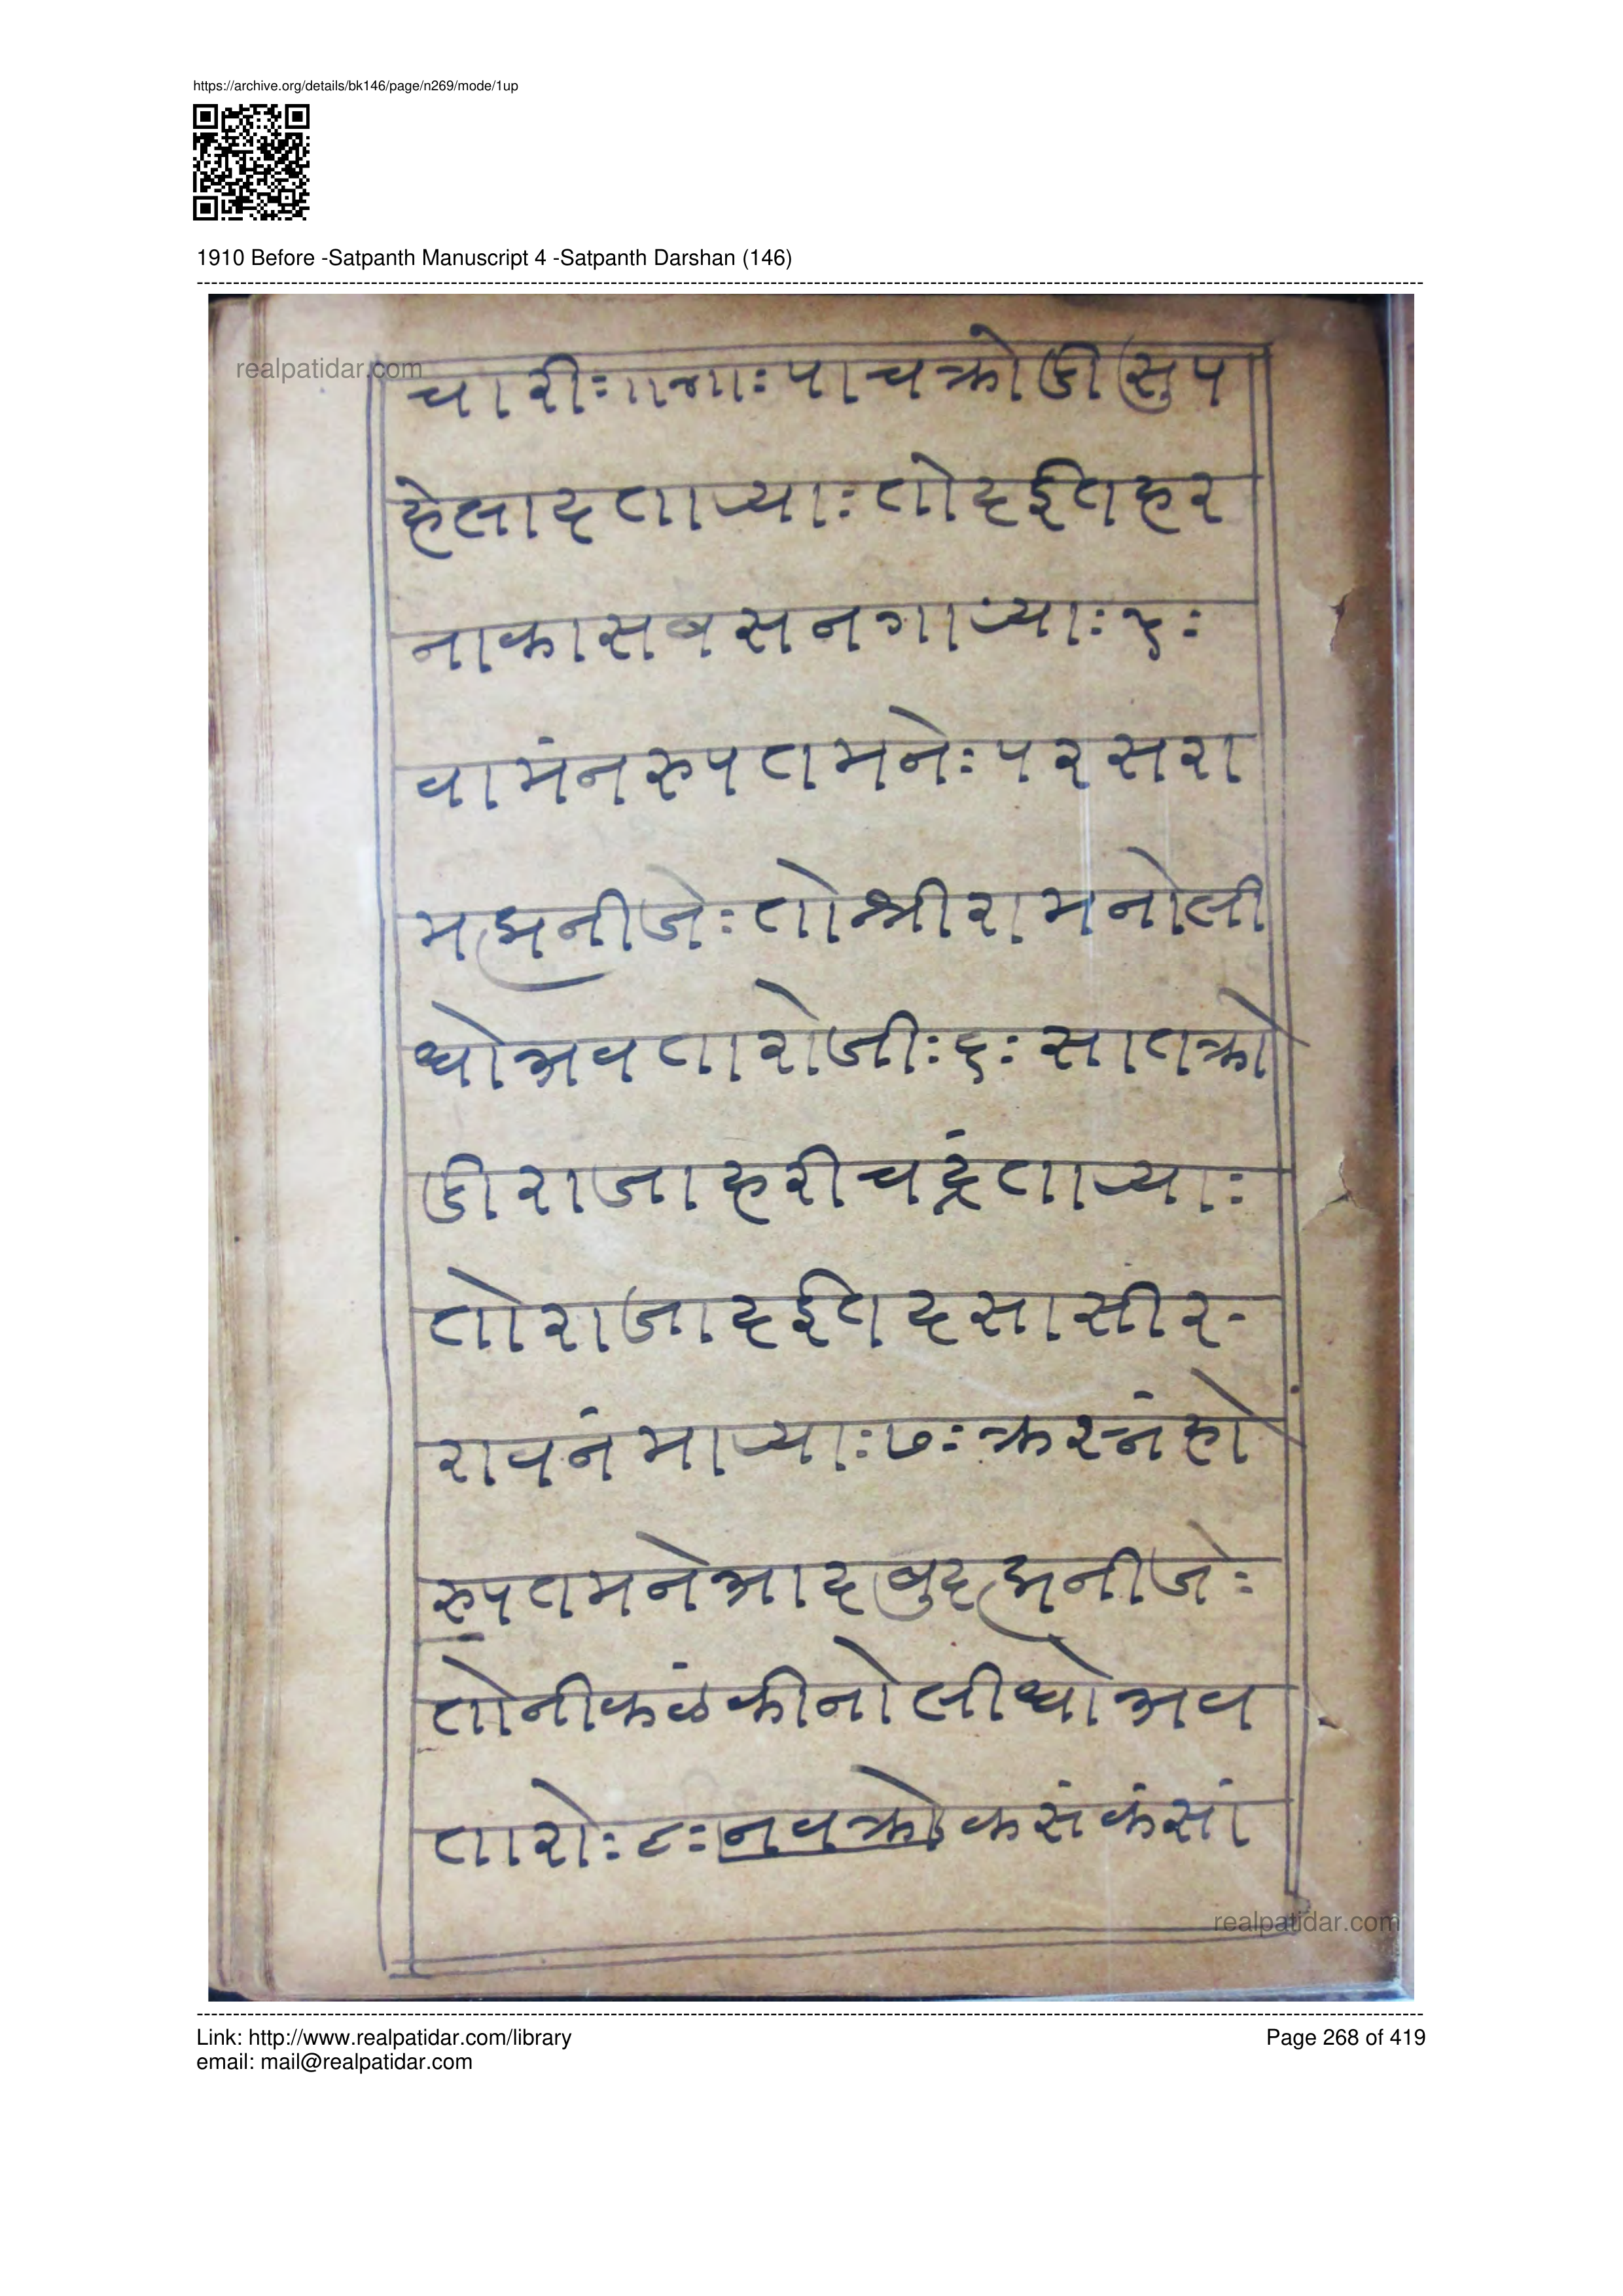 https://archive.org/details/bk146/page/n269/mode/1up
1910 Before -Satpanth Manuscript 4 -Satpanth Darshan (146)
realpatidar.com
चारीः पाचक्रोडीसुप
हेलादताऱ्याः तोदईतहर
नाकासबसनगाऱ्याः५ः
वामंनरुपतमनेः परसरा
मह्मनीजेः तोश्रीरामनोली
धोअवतारोजीः६ः सातक्रो
डीराजाहरीचद्रंताऱ्याः
तोराजादईतदसासीर-
रावनंमाऱ्याः७ः क्ररनंहो
रुपतमनेआदबुदह्मनीजेः
तोनीकळंकीनोलीधोअव
तारोः८ः नवक्रोकसंकंसां
realpatidar.com
Link: http://www.realpatidar.com/library
Page 268 of 419
email: mail@realpatidar.com